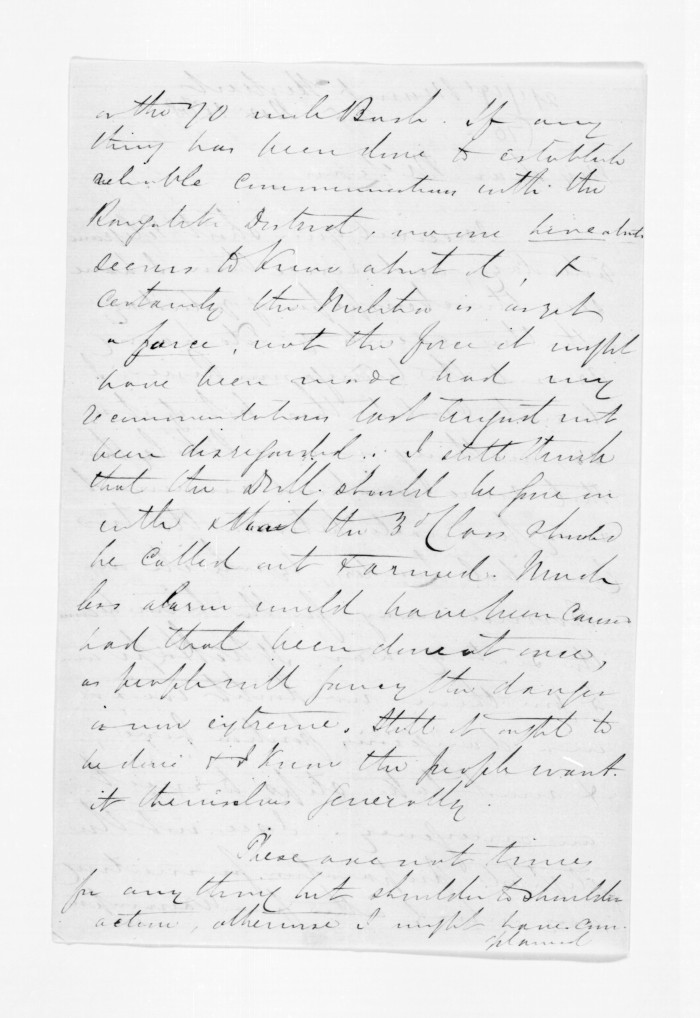 or the 70 mile Bush. If any
thing has been done to establish
reliable communications with the
Rangitiki District, no one hereabouts
seems to know about it, &
certainly the Militia is as yet
a farce, not the force it might
have been made had my
recommendations last August not
been disregarded. I still think
that the drill should be gone on
with & that the 3d Class should
be called out & armed. Much
less alarm would have been caused
had that been done at once,
as people will fancy the danger
is now extreme. Still it ought to
be done & I know the people want
it themselves generally.
These are not times
for anything but shoulder to shoulder
action, otherwise I might have com-
plained